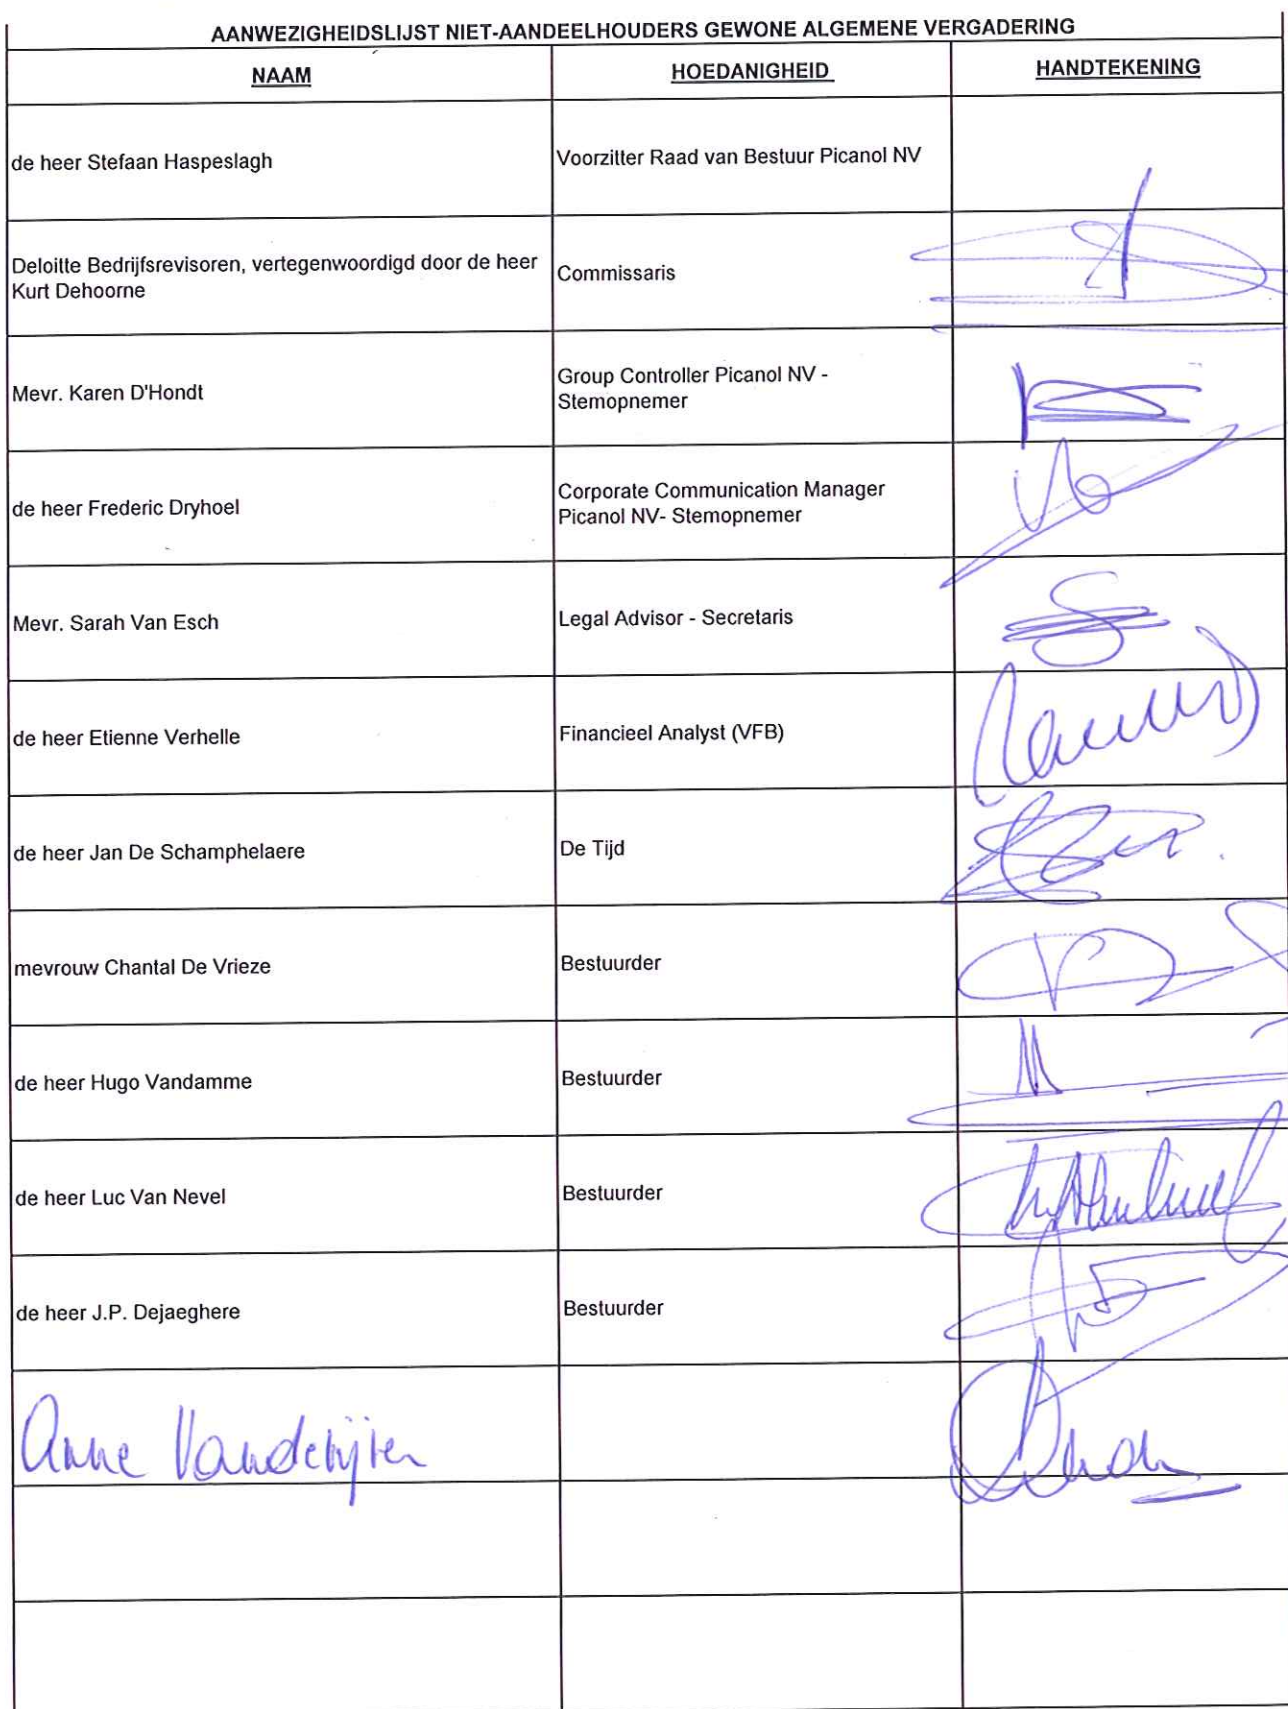 AANWEZIGHEIDSLIJST NIET-AANDEELHOUDERS GEWONE ALGEMENE VERGADERING
NAAM HOEDANIGHEID HANDTEKENING
de heer Stefaan Haspeslagh Voorzitter Raad van Bestuur Picanol NV
Deloitte Bedrijfsrevisoren, vertegenwoordigd door de heer
Kurt Dehoorne Commissaris
Mevr. Karen D'Hondt Group Controller Picanol NV -
Stemopnemer
de heer Frederic Dryhoel Corporate Communication Manager
Picanol NV- Stemopnemer
Mevr. Sarah Van Esch Legal Advisor - Secretaris
de heer Etienne Verhelle Financieel Analyst (VFB)
de heer Jan De Schamphelaere De Tijd
mevrouw Chantal De Vrieze Bestuurder
de heer Hugo Vandamme Bestuurder
de heer Luc Van Nevel Bestuurder
de heer J.P. Dejaeghere Bestuurder
Anne